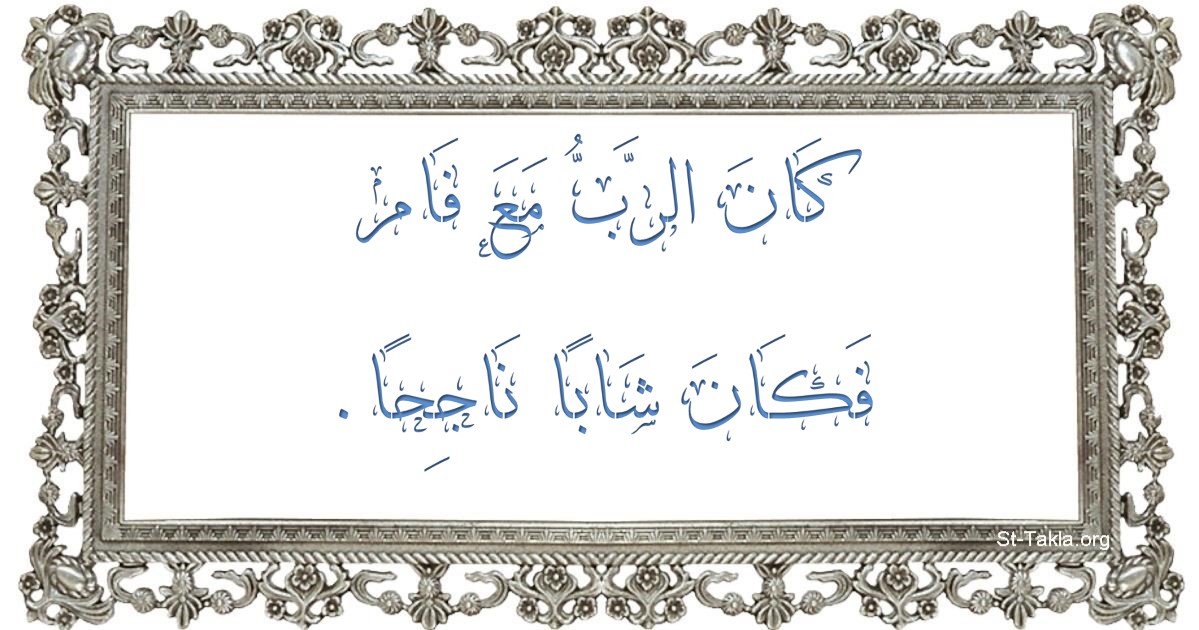 كَانَ الرَّبُّ مَعَ فَام
فَكَانَ شَابًا نَاجِحًا .
St-Takla.org